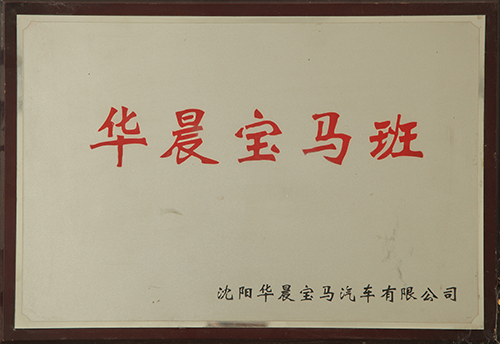 华晨宝马班
沈阳华晨宝马汽车有限公司